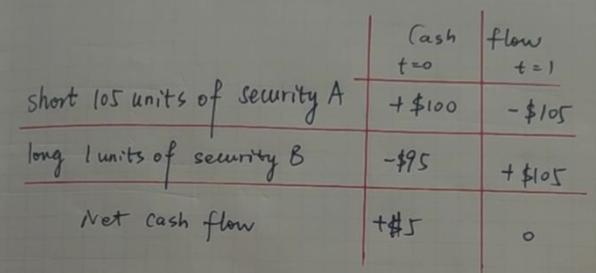 Cash flow
t=0 t=1
short 105 units of security A +$100 -$105
long 1 units of security B -$95 +$105
Net cash flow +$5 0